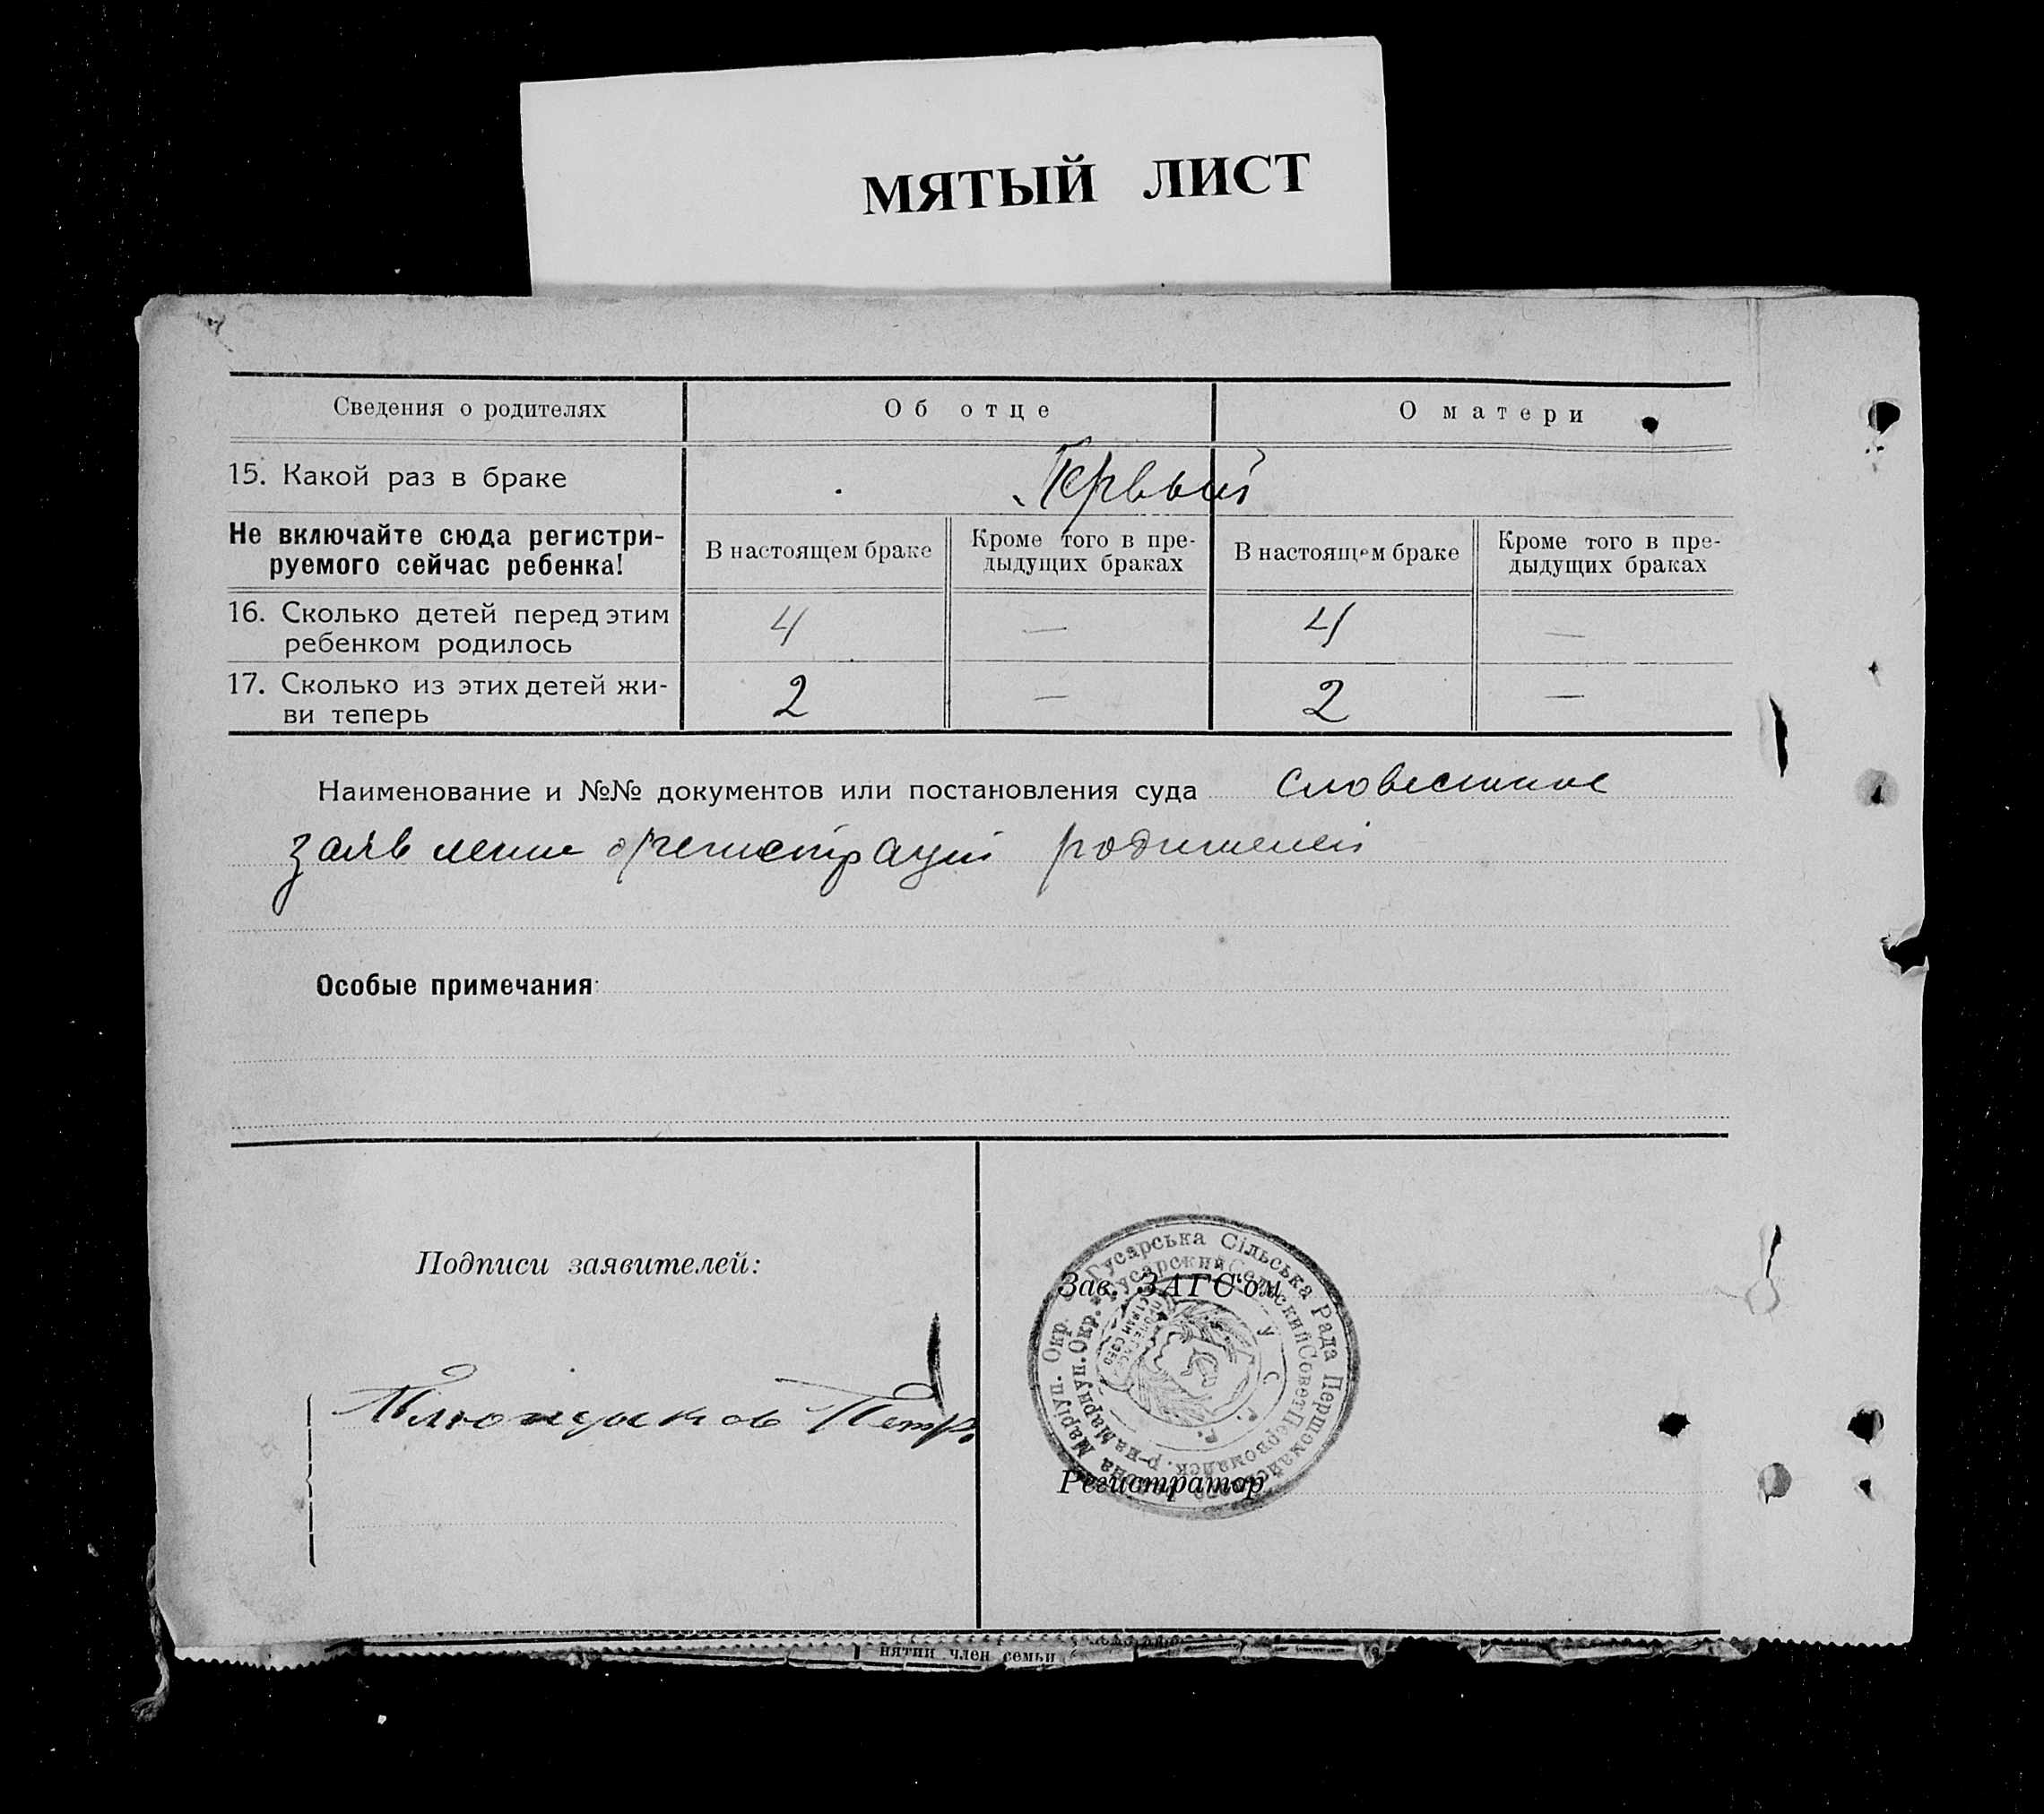 МЯТЫЙ ЛИСТ
Сведения о родителях
Об отце
О матери
15. Какой раз в браке
Первый
Не включайте сюда регистри-
руемого сейчас ребенка!
В настоящем браке
Кроме того в пре-
дыдущих браках
В настоящем браке
Кроме того в пре-
дыдущих браках
16. Сколько детей перед этим
ребенком родилось
4
—
4
—
17. Сколько из этих детей жи-
ви теперь
2
—
2
—
Наименование и №№ документов или постановления суда словестное
заявление о регистраций родителей
Особые примечания:
Подписи заявителей:
Петр.
Зав. ЗАГС'ом
Регистратор
Гусарська Сільська Рада Першомайськ
Маріуп. Окр.
Гусарский Сельский Совет Первомайск. р-на Мариуп. Окр.
У.С.Р.Р.
нятии член семьи